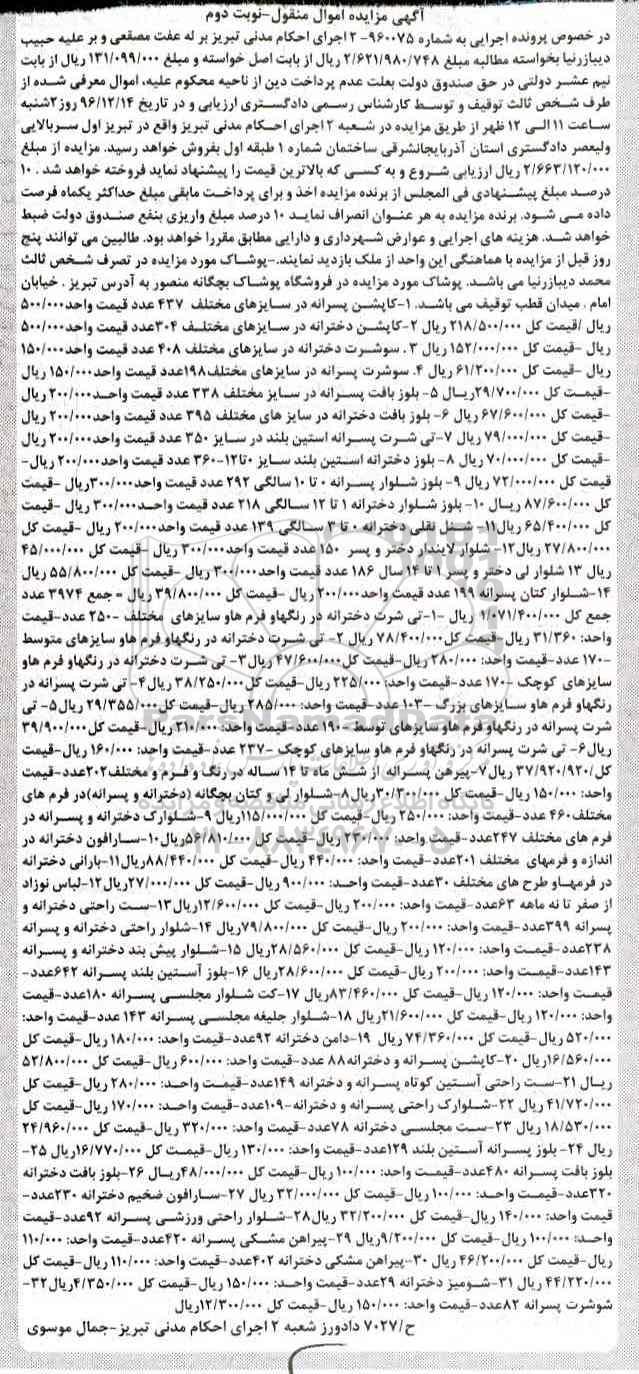 آگهی مزایده اموال منقول-نوبت دوم
در خصوص پرونده اجرایی به شماره ۹۶۰۰۷۵-۲ اجرای احکام مدنی تبریز بر له عفت مصقعی و بر علیه حبیب
دیبازرنیا بخواسته مطالبه مبلغ ۲/۶۲۱/۹۸۰/۷۴۸ ریال از بابت اصل خواسته و مبلغ ۱۳۱/۰۹۹/۰۰۰ ریال از بابت
نیم عشر دولتی در حق صندوق دولت بعلت عدم پرداخت دین از ناحیه محکوم علیه، اموال معرفی شده از
طرف شخص ثالث توقیف و توسط کارشناس رسمی دادگستری ارزیابی و در تاریخ ۹۶/۱۲/۱۴ روز ۲شنبه
ساعت ۱۱ الی ۱۲ ظهر از طریق مزایده در شعبه ۲ اجرای احکام مدنی تبریز واقع در تبریز اول سربالایی
ولیعصر دادگستری استان آذربایجانشرقی ساختمان شماره ۱ طبقه اول بفروش خواهد رسید. مزایده از مبلغ
۲/۶۶۳/۱۲۰/۰۰۰ ریال ارزیابی شروع و به کسی که بالاترین قیمت را پیشنهاد نماید فروخته خواهد شد . ۱۰
درصد مبلغ پیشنهادی فی المجلس از برنده مزایده اخذ و برای پرداخت مابقی مبلغ حداکثر یکماه فرصت
داده می شود. برنده مزایده به هر عنوان انصراف نماید ۱۰ درصد مبلغ واریزی بنفع صندوق دولت ضبط
خواهد شد. هزینه های اجرایی و عوارض شهرداری و دارایی مطابق مقررا خواهد بود. طالبین می توانند پنج
روز قبل از مزایده با هماهنگی این واحد از ملک بازدید نمایند.-پوشاک مورد مزایده در تصرف شخص ثالث
محمد دیبازرنیا می باشد. پوشاک مورد مزایده در فروشگاه پوشاک بچگانه منصور به آدرس تبریز . خیابان
امام . میدان قطب توقیف می باشد. ۱-کاپشن پسرانه در سایزهای مختلف ۴۳۷ عدد قیمت واحد۵۰۰/۰۰۰
ریال /قیمت کل ۲۱۸/۵۰۰/۰۰۰ ریال ۲-کاپشن دخترانه در سایزهای مختلف ۳۰۴عدد قیمت واحد۵۰۰/۰۰۰
ریال -قیمت کل ۱۵۲/۰۰۰/۰۰۰ ریال ۳ . سوشرت دخترانه در سایزهای مختلف ۴۰۸ عدد قیمت واحد۱۵۰/۰۰۰
ریال -قیمت کل ۶۱/۲۰۰/۰۰۰ ریال ۴. سوشرت پسرانه در سایزهای مختلف۱۹۸عدد قیمت واحد۱۵۰/۰۰۰ ریال
-قیمت کل ۲۹/۷۰۰/۰۰۰ریال ۵- بلوز بافت پسرانه در سایز مختلف ۳۳۸ عدد قیمت واحد۲۰۰/۰۰۰ ریال
-قیمت کل ۶۷/۶۰۰/۰۰۰ ریال ۶- بلوز بافت دخترانه در سایز های مختلف ۳۹۵ عدد قیمت واحد۲۰۰/۰۰۰ ریال
-قیمت کل ۷۹/۰۰۰/۰۰۰ ریال ۷-تی شرت پسرانه استین بلند در سایز ۳۵۰ عدد قیمت واحد۲۰۰/۰۰۰ ریال
-قیمت کل ۷۰/۰۰۰/۰۰۰ ریال ۸- بلوز دخترانه استین بلند سایز ۰تا۱۲-۳۶۰ عدد قیمت واحد۲۰۰/۰۰۰ ریال-
قیمت کل ۷۲/۰۰۰/۰۰۰ ریال ۹- بلوز شلوار پسرانه ۰ تا ۱۰ سالگی ۲۹۲ عدد قیمت واحد۳۰۰/۰۰۰ریال -قیمت
کل ۸۷/۶۰۰/۰۰۰ ریال ۱۰- بلوز شلوار دخترانه ۱ تا ۱۲ سالگی ۲۱۸ عدد قیمت واحد۳۰۰/۰۰۰ ریال -قیمت
کل ۶۵/۴۰۰/۰۰۰ ریال۱۱- شنل نقلی دخترانه ۰ تا ۳ سالگی ۱۳۹ عدد قیمت واحد۲۰۰/۰۰۰ ریال -قیمت کل
۲۷/۸۰۰/۰۰۰ ریال۱۲- شلوار لایندار دختر و پسر ۱۵۰ عدد قیمت واحد۳۰۰/۰۰۰ ریال -قیمت کل ۴۵/۰۰۰/۰۰۰
ریال ۱۳ شلوار لی دختر و پسر ۱ تا ۱۴ سال ۱۸۶ عدد قیمت واحد۳۰۰/۰۰۰ ریال -قیمت کل ۵۵/۸۰۰/۰۰۰ ریال
۱۴-شلوار کتان پسرانه ۱۹۹ عدد قیمت واحد۲۰۰/۰۰۰ ریال -قیمت کل ۳۹/۸۰۰/۰۰۰ ریال = جمع ۳۹۷۴ عدد
جمع کل ۱/۰۷۱/۴۰۰/۰۰۰ ریال -۱-تی شرت دخترانه در رنگهاو فرم هاو سایزهای مختلف -۲۵۰ عدد-قیمت
واحد: ۳۱/۳۶۰ ریال-قیمت کل۷۸/۴۰۰/۰۰۰ ریال ۲- تی شرت دخترانه در رنگهاو فرم هاو سایزهای متوسط
-۱۷۰ عدد-قیمت واحد: ۲۸۰/۰۰۰ ریال-قیمت کل۴۷/۶۰۰/۰۰۰ ریال۳- تی شرت دخترانه در رنگهاو فرم هاو
سایزهای کوچک -۱۷۰ عدد-قیمت واحد: ۲۲۵/۰۰۰ ریال-قیمت کل۳۸/۲۵۰/۰۰۰ ریال۴- تی شرت پسرانه در
رنگهاو فرم هاو سایزهای بزرگ -۱۰۳ عدد-قیمت واحد: ۲۸۵/۰۰۰ ریال-قیمت کل۲۹/۳۵۵/۰۰۰ ریال۵- تی
شرت پسرانه در رنگهاو فرم هاو سایزهای توسط-۱۹۰ عدد-قیمت واحد: ۲۱۰/۰۰۰ ریال-قیمت کل۳۹/۹۰۰/۰۰۰
ریال۶- تی شرت پسرانه در رنگهاو فرم هاو سایزهای کوچک -۲۳۷ عدد-قیمت واحد: ۱۶۰/۰۰۰ ریال-قیمت
کل/۳۷/۹۲۰/۹۲۰ ریال۷-پیرهن پسرانه از شش ماه تا ۱۴ ساله در رنگ و فرم و مختلف۲۰۲عدد-قیمت
واحد: ۱۵۰/۰۰۰ ریال-قیمت کل ۳۰/۳۰۰/۰۰۰ریال ۸-شلوار لی و کتان بچگانه (دخترانه و پسرانه)در فرم های
مختلف۴۶۰ عدد-قیمت واحد: ۲۵۰/۰۰۰ ریال-قیمت کل ۱۱۵/۰۰۰/۰۰۰ریال ۹-شلوارک دخترانه و پسرانه در
فرم های مختلف ۲۴۷عدد-قیمت واحد: ۲۳۰/۰۰۰ ریال-قیمت کل ۵۶/۸۱۰/۰۰۰ریال۱۰-سارافون دخترانه در
اندازه و فرمهای مختلف ۲۰۱عدد-قیمت واحد: ۴۴۰/۰۰۰ ریال-قیمت کل ۸۸/۴۴۰/۰۰۰ریال۱۱-بارانی دخترانه
در فرمهاو طرح های مختلف ۳۰عدد-قیمت واحد: ۹۰۰/۰۰۰ ریال-قیمت کل ۲۷/۰۰۰/۰۰۰ریال۱۲-لباس نوزاد
از صفر تا نه ماهه ۶۳عدد-قیمت واحد: ۲۰۰/۰۰۰ ریال-قیمت کل ۱۲/۶۰۰/۰۰۰ریال۱۳-ست راحتی دخترانه و
پسرانه ۳۹۹عدد-قیمت واحد: ۲۰۰/۰۰۰ ریال-قیمت کل ۷۹/۸۰۰/۰۰۰ریال ۱۴-شلوار راحتی دخترانه و پسرانه
۲۳۸عدد-قیمت واحد: ۱۲۰/۰۰۰ ریال-قیمت کل ۲۸/۵۶۰/۰۰۰ریال ۱۵-شلوار پیش بند دخترانه و پسرانه
۱۴۳عدد-قیمت واحد: ۲۰۰/۰۰۰ ریال-قیمت کل ۲۸/۶۰۰/۰۰۰ریال ۱۶-بلوز آستین بلند پسرانه ۶۴۲عدد-
قیمت واحد: ۱۲۰/۰۰۰ ریال-قیمت کل ۸۳/۴۶۰/۰۰۰ریال ۱۷-کت شلوار مجلسی پسرانه ۱۸۰عدد-قیمت
واحد: ۱۲۰/۰۰۰ ریال-قیمت کل ۲۱/۶۰۰/۰۰۰ریال ۱۸-شلوار جلیقه مجلسی پسرانه ۱۴۳ عدد-قیمت واحد:
۵۲۰/۰۰۰ ریال-قیمت کل ۷۴/۳۶۰/۰۰۰ ریال ۱۹-دامن دخترانه ۹۲عدد-قیمت واحد: ۱۸۰/۰۰۰ ریال-قیمت کل
۱۶/۵۶۰/۰۰۰ریال ۲۰-کاپشن پسرانه و دخترانه۸۸ عدد-قیمت واحد: ۶۰۰/۰۰۰ ریال-قیمت کل ۵۲/۸۰۰/۰۰۰
ریال ۲۱-ست راحتی آستین کوتاه پسرانه و دخترانه ۱۴۹عدد-قیمت واحد: ۲۸۰/۰۰۰ ریال-قیمت کل
۴۱/۷۲۰/۰۰۰ ریال ۲۲-شلوارک راحتی پسرانه و دخترانه-۱۰۹عدد-قیمت واحد: ۱۷۰/۰۰۰ ریال-قیمت کل
۱۸/۵۳۰/۰۰۰ ریال ۲۳-ست مجلسی دخترانه ۷۸عدد-قیمت واحد: ۳۲۰/۰۰۰ ریال-قیمت کل ۲۴/۹۶۰/۰۰۰
ریال ۲۴- بلوز پسرانه آستین بلند ۱۲۹عدد-قیمت واحد: ۱۳۰/۰۰۰ ریال-قیمت کل ۱۶/۷۷۰/۰۰۰ریال ۲۵-
بلوز بافت پسرانه ۴۸۰عدد-قیمت واحد: ۱۰۰/۰۰۰ ریال-قیمت کل ۴۸/۰۰۰/۰۰۰ریال ۲۶-بلوز بافت دخترانه
۳۲۰عدد-قیمت واحد: ۱۰۰/۰۰۰ ریال-قیمت کل ۳۲/۰۰۰/۰۰۰ ریال ۲۷-سارافون ضخیم دخترانه ۲۳۰عدد-
قیمت واحد: ۱۴۰/۰۰۰ ریال-قیمت کل ۳۲/۲۰۰/۰۰۰ ریال۲۸-شلوار راحتی ورزشی پسرانه ۹۲عدد-قیمت
واحد: ۱۰۰/۰۰۰ ریال-قیمت کل ۹/۲۰۰/۰۰۰ریال ۲۹-پیراهن مشکی پسرانه ۴۲۰عدد-قیمت واحد: ۱۱۰/۰۰۰
ریال-قیمت کل ۴۶/۲۰۰/۰۰۰ ریال ۳۰-پیراهن مشکی دخترانه ۴۰۲عدد-قیمت واحد: ۱۱۰/۰۰۰ ریال-قیمت کل
۴۴/۲۲۰/۰۰۰ ریال ۳۱-شومیز دخترانه ۲۹عدد-قیمت واحد: ۱۵۰/۰۰۰ ریال-قیمت کل ۴/۳۵۰/۰۰۰ریال۳۲-
شوشرت پسرانه ۸۲عدد-قیمت واحد: ۱۵۰/۰۰۰ ریال-قیمت کل ۱۲/۳۰۰/۰۰۰ریال
ح/۷۰۲۷ دادورز شعبه ۲ اجرای احکام مدنی تبریز-جمال موسوی
ParsNamadData